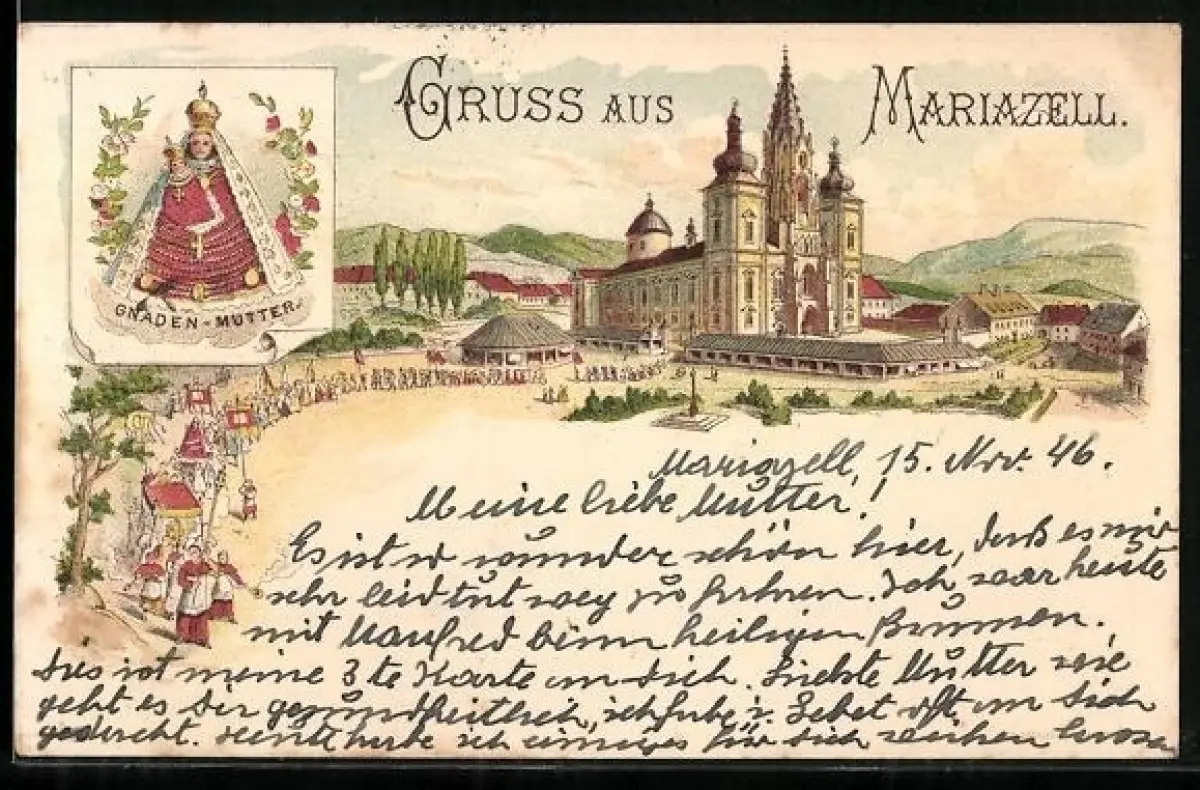 GRUSS AUS MARIAZELL.
GNADEN-MUTTER.
Mariazell, 15. Nov. 46.
Meine liebe Mutter!
Es ist so wunder schön hier, daß es mir
sehr leid tut weg zu fahren. Ich war heute
mit Manfred beim heiligen Brunnen.
Dies ist meine 3te Karte an dich. Liebste Mutter wie
geht es Dir gesundheitlich, ich habe i. Gebet oft an Dich
gedacht. Heute habe ich einiges für Dich weihen